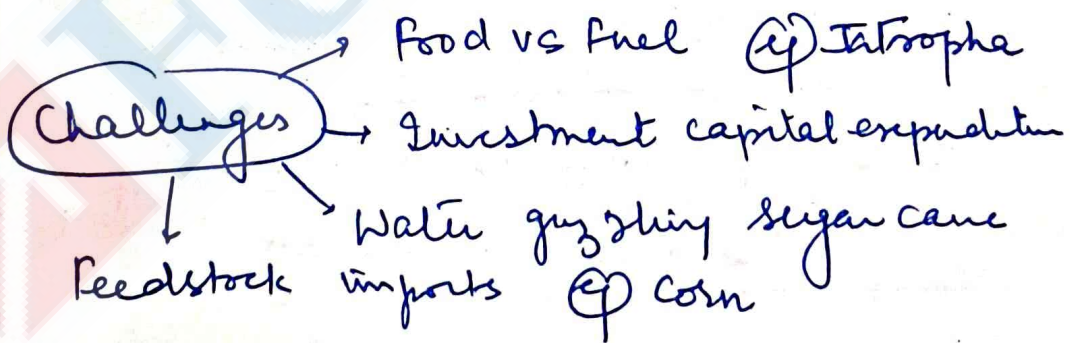 Food vs Fuel eg Jatropha
Challenges
Investment capital expenditure
Water guzzling sugarcane
Feedstock imports eg Corn